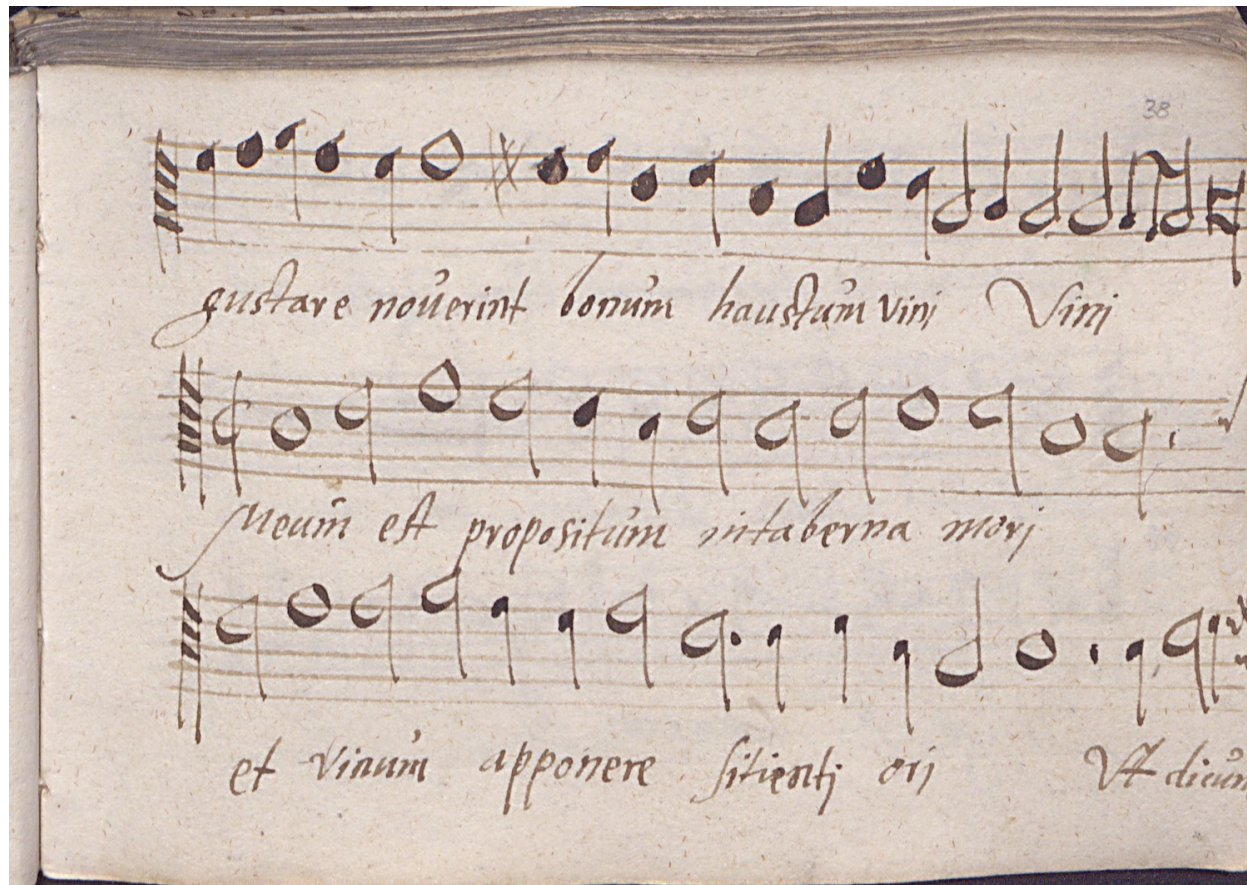 38
gustare noverint bonum haustum vinj Vinj
Meum est propositum in taberna morj
et vinum apponere sitientj orj Vt dicun